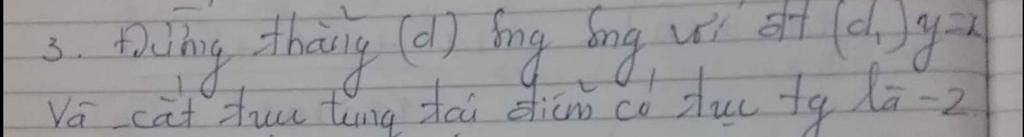 3. Đường thẳng (d) sng sng với đt (d₁) y=x
Và cắt trục tung tại điểm có trục tg là -2